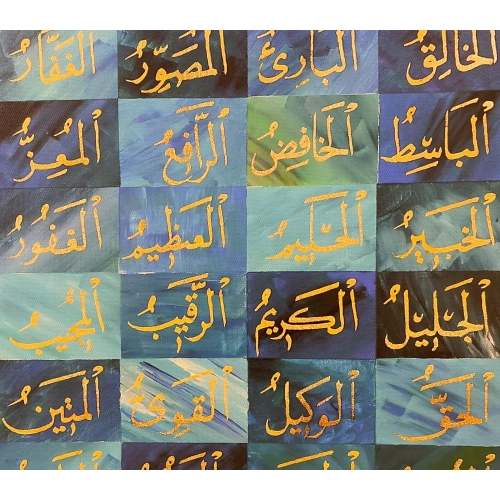 الخالق البارئ المصور الغفار
الباسط الخافض الرافع المعز
الخبير الحليم العظيم الغفور
الجليل الكريم الرقيب المجيب
الحق الوكيل القوي المتين